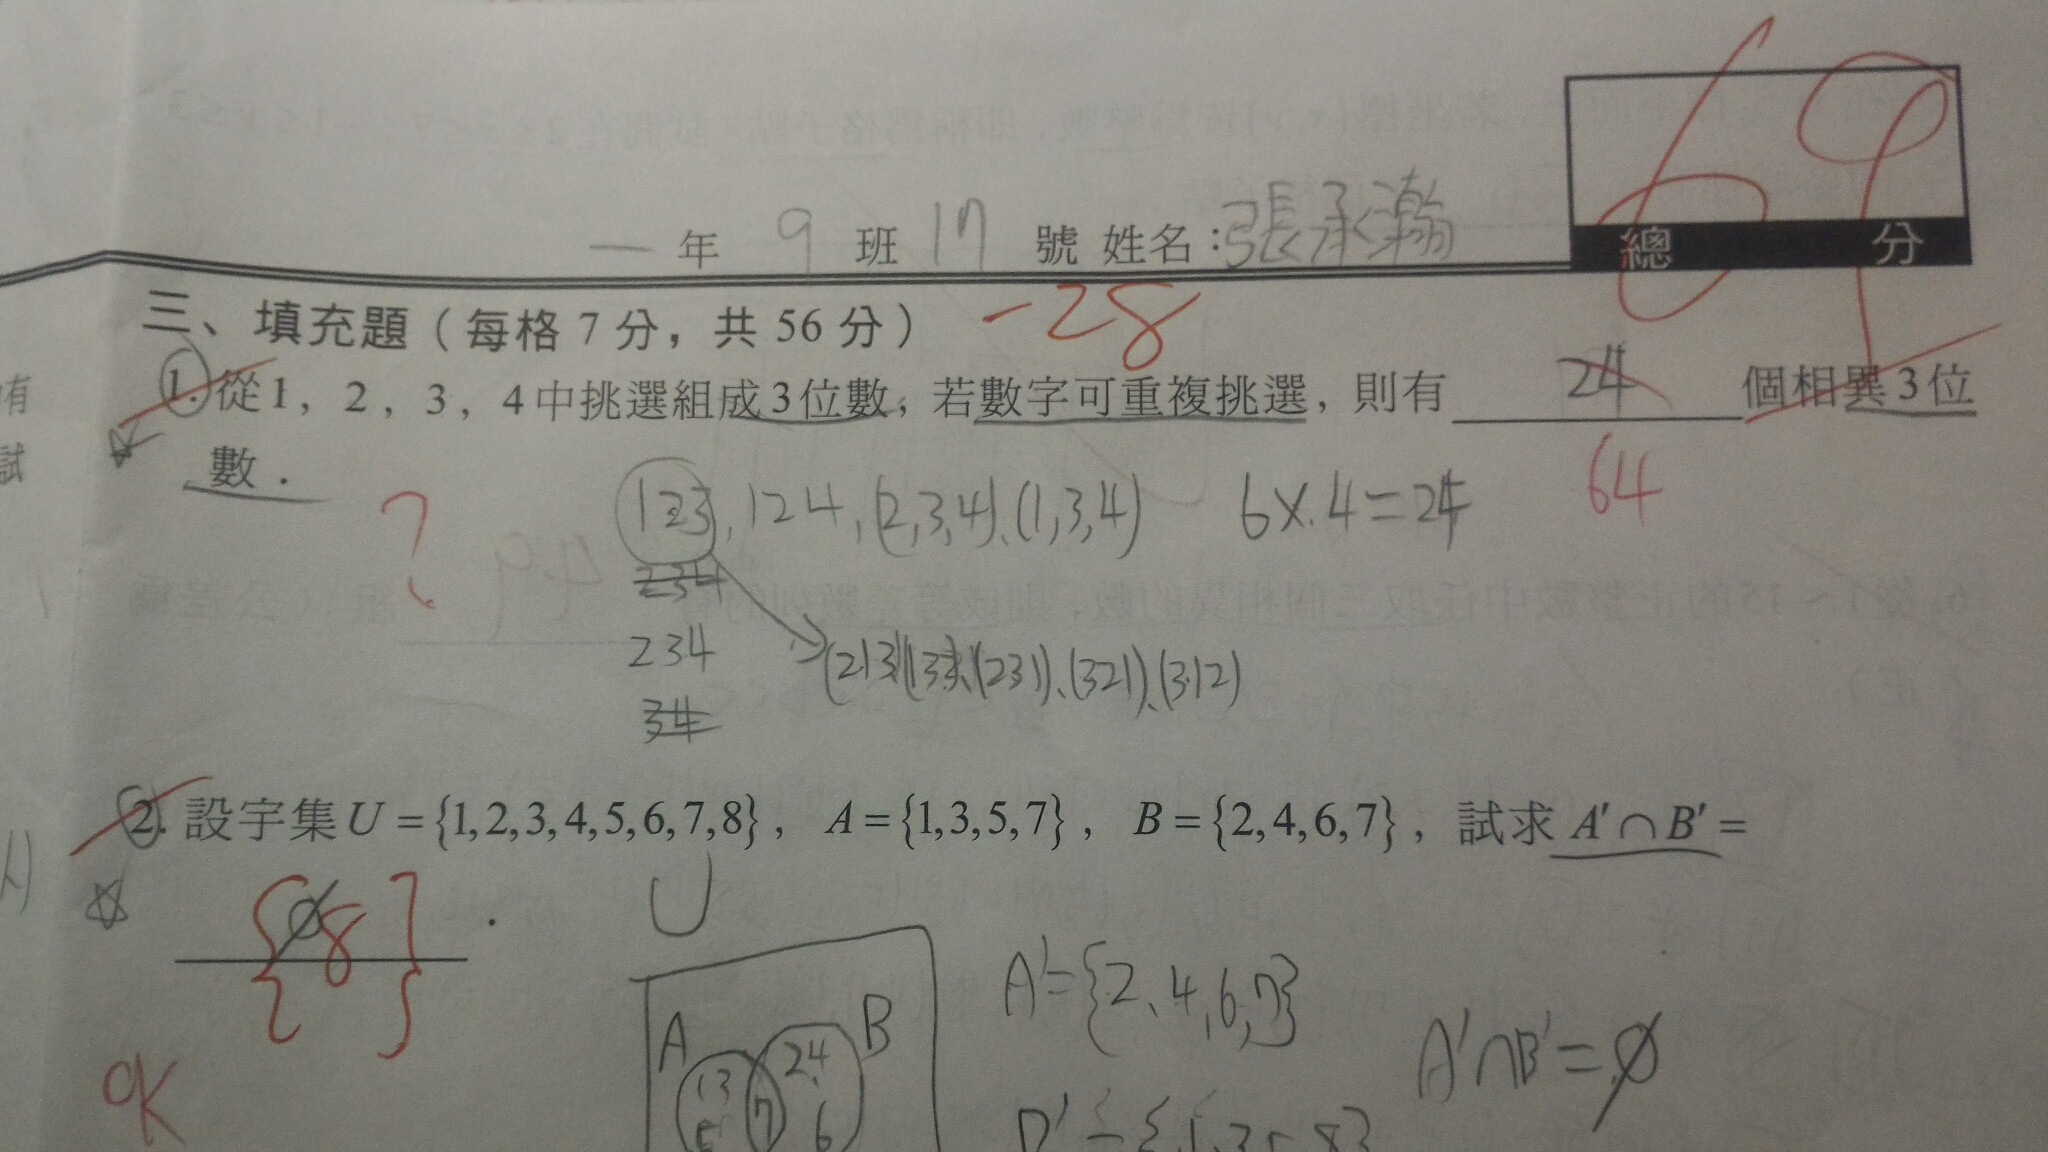 69
總 分
一 年 9 班 17 號 姓名:張承瀚
三、填充題(每格 7 分,共 56 分) -28
1. 從1,2,3,4中挑選組成3位數,若數字可重複挑選,則有 24 個相異3位
數. 64
? 123, 124, (2,3,4)、(1,3,4) 6×4=24
234
234
(213)、(231)、(321)、(312)
34
2. 設宇集U={1,2,3,4,5,6,7,8}, A={1,3,5,7}, B={2,4,6,7},試求 A'∩B'=
{∅8} .
U
A'={2、4,6,7}
A B
A'∩B'=∅
13 24
5 7 6
OK
有
試